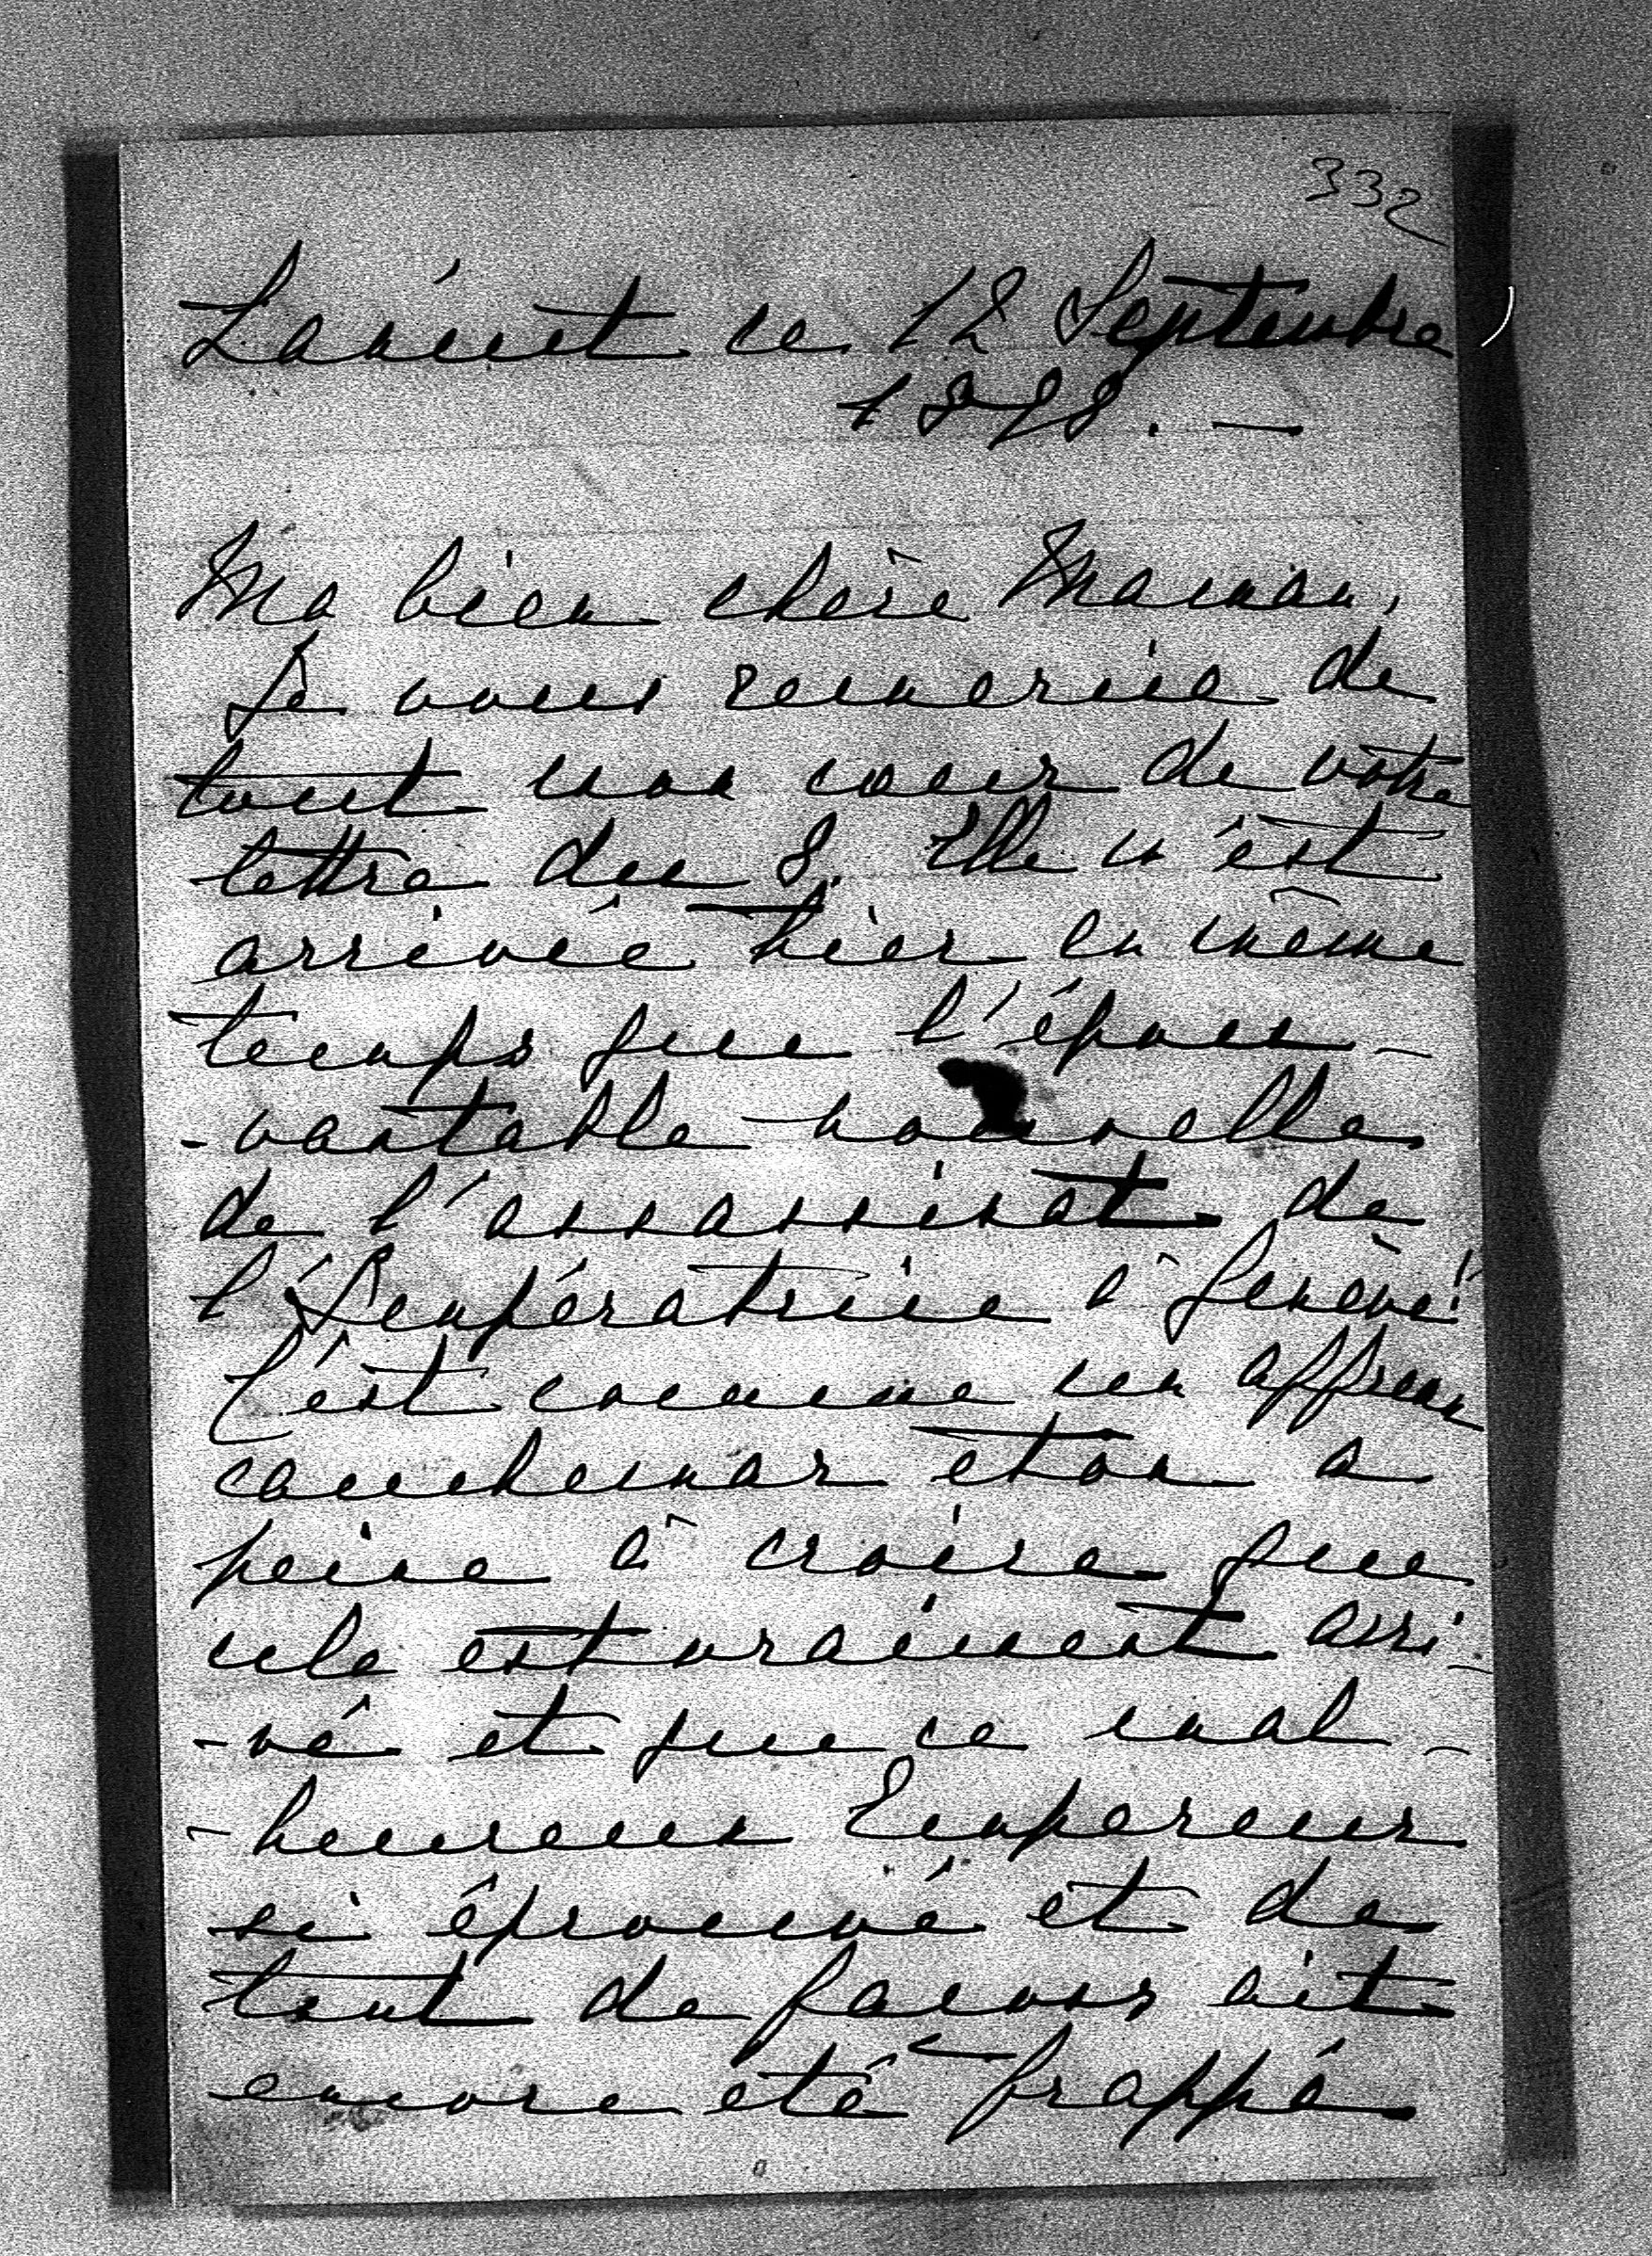 332
Lancut ce 12 Septembre
1898. —
Ma bien chère Maman,
Je vous remercie de
tout mon coeur de votre
lettre du 8. Elle m'est
arrivée hier en même
temps que l'épou-
-vantable nouvelle
de l'assassinat de
l'Impératrice à Genève!
C'est comme un affreux
cauchemar et on a
peine à croire que
cela est vraiment arri-
-vé et que ce mal-
-heureux Empereur
si éprouvé et de
tant de façons ait
encore été frappé